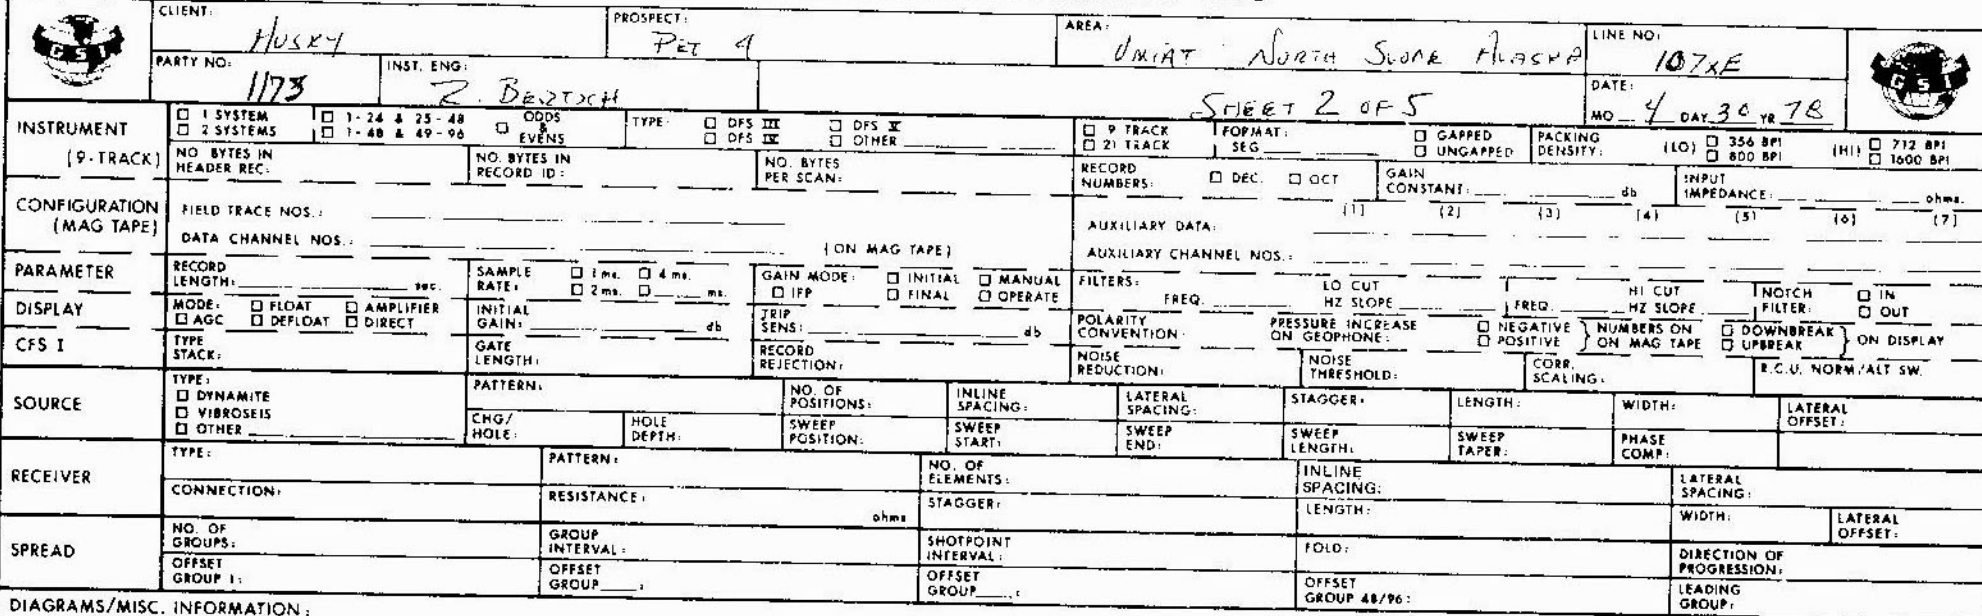 CLIENT: HUSKY PROSPECT: PET 4 AREA: UMIAT NORTH SLOPE ALASKA LINE NO: 107XE
GSI GSI
PARTY NO: 1173 INST. ENG: R. BERTSCH SHEET 2 OF 5 DATE: MO 4 DAY 30 YR 78
INSTRUMENT (9-TRACK) 1 SYSTEM 1-24 & 25-48 ODDS & EVENS TYPE: DFS III DFS V 9 TRACK FORMAT: GAPPED PACKING DENSITY: (LO) 356 BPI (HI) 712 BPI
2 SYSTEMS 1-48 & 49-96 DFS IV OTHER 21 TRACK SEG UNGAPPED 800 BPI 1600 BPI
NO BYTES IN HEADER REC: NO. BYTES IN RECORD ID: NO. BYTES PER SCAN: RECORD NUMBERS: DEC. OCT GAIN CONSTANT: db INPUT IMPEDANCE: ohms.
CONFIGURATION (MAG TAPE) FIELD TRACE NOS.: AUXILIARY DATA: (1) (2) (3) (4) (5) (6) (7)
DATA CHANNEL NOS.: (ON MAG TAPE) AUXILIARY CHANNEL NOS.:
PARAMETER RECORD LENGTH: sec. SAMPLE RATE: 1 ms. 4 ms. 2 ms. ms. GAIN MODE: INITIAL MANUAL IFP FINAL OPERATE FILTERS: FREQ. LO CUT HZ SLOPE FREQ. HI CUT HZ SLOPE NOTCH FILTER: IN OUT
DISPLAY MODE: FLOAT AMPLIFIER AGC DEFLOAT DIRECT INITIAL GAIN: db TRIP SENS: db POLARITY CONVENTION: PRESSURE INCREASE ON GEOPHONE: NEGATIVE POSITIVE NUMBERS ON ON MAG TAPE DOWNBREAK UPBREAK ON DISPLAY
CFS I TYPE STACK: GATE LENGTH: RECORD REJECTION: NOISE REDUCTION: NOISE THRESHOLD: CORR. SCALING: R.C.U. NORM/ALT SW.
SOURCE TYPE: DYNAMITE VIBROSEIS OTHER PATTERN: NO. OF POSITIONS: INLINE SPACING: LATERAL SPACING: STAGGER: LENGTH: WIDTH: LATERAL OFFSET:
CHG/HOLE: HOLE DEPTH: SWEEP POSITION: SWEEP START: SWEEP END: SWEEP LENGTH: SWEEP TAPER: PHASE COMP:
RECEIVER TYPE: PATTERN: NO. OF ELEMENTS: INLINE SPACING: LATERAL SPACING:
CONNECTION: RESISTANCE: ohms STAGGER: LENGTH: WIDTH: LATERAL OFFSET:
SPREAD NO. OF GROUPS: GROUP INTERVAL: SHOTPOINT INTERVAL: FOLD: DIRECTION OF PROGRESSION:
OFFSET GROUP 1: OFFSET GROUP : OFFSET GROUP : OFFSET GROUP 48/96: LEADING GROUP:
DIAGRAMS/MISC. INFORMATION: